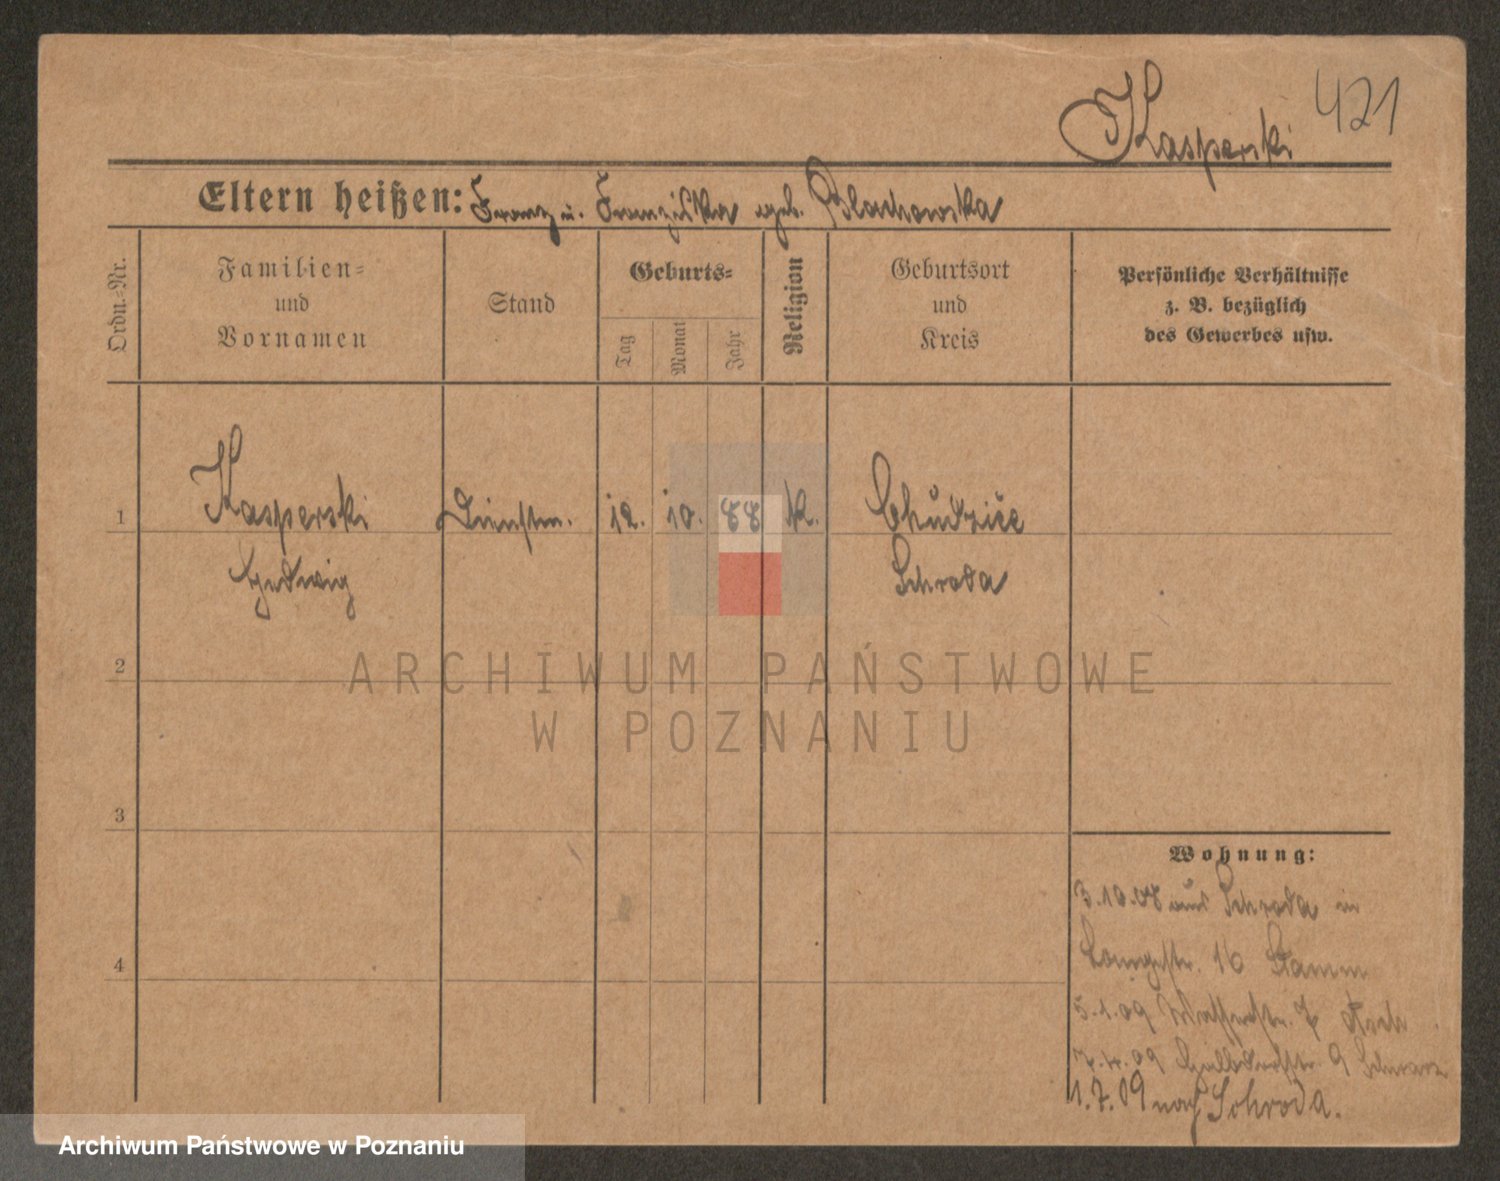 Kasperski 421
Eltern heißen: Franz u. Franziska geb. Blachowska
Ordn.-Nr.
Familien-
und
Vornamen
Stand
Geburts-
Tag
Monat
Jahr
Religion
Geburtsort
und
Kreis
Persönliche Verhältnisse
z. B. bezüglich
des Gewerbes usw.
1 Kasperski Dienstm. 12. 10. 88 K. Chudzice
Hedwig Schroda
ARCHIWUM PAŃSTWOWE
W POZNANIU
2
3
4
Wohnung:
3.10.08 aus Schroda in
Langestr. 16 Stamm
5.1.09 7
09 Halbdorfstr. 9 Schwarz
1.7.09 nach Schroda.
Archiwum Państwowe w Poznaniu